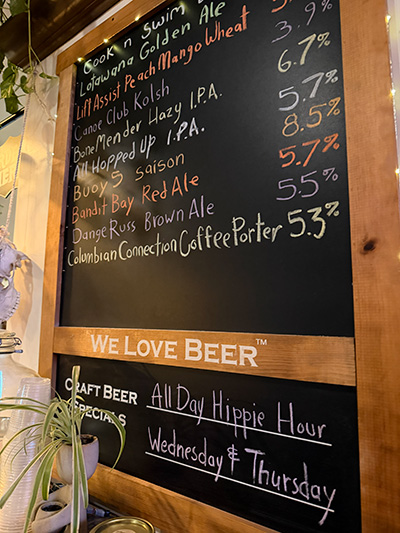 Cook n Swim
Latawana Golden Ale
Lift Assist Peach Mango Wheat
Canoe Club Kolsh 3.9%
BoneMender Hazy I.P.A. 6.7%
All Hopped Up I.P.A. 5.7%
Buoy 5 Saison 8.5%
Bandit Bay Red Ale 5.7%
Dange Russ Brown Ale 5.5%
Columbian Connection Coffee Porter 5.3%
WE LOVE BEER™
CRAFT BEER
SPECIALS
All Day Hippie Hour
Wednesday & Thursday